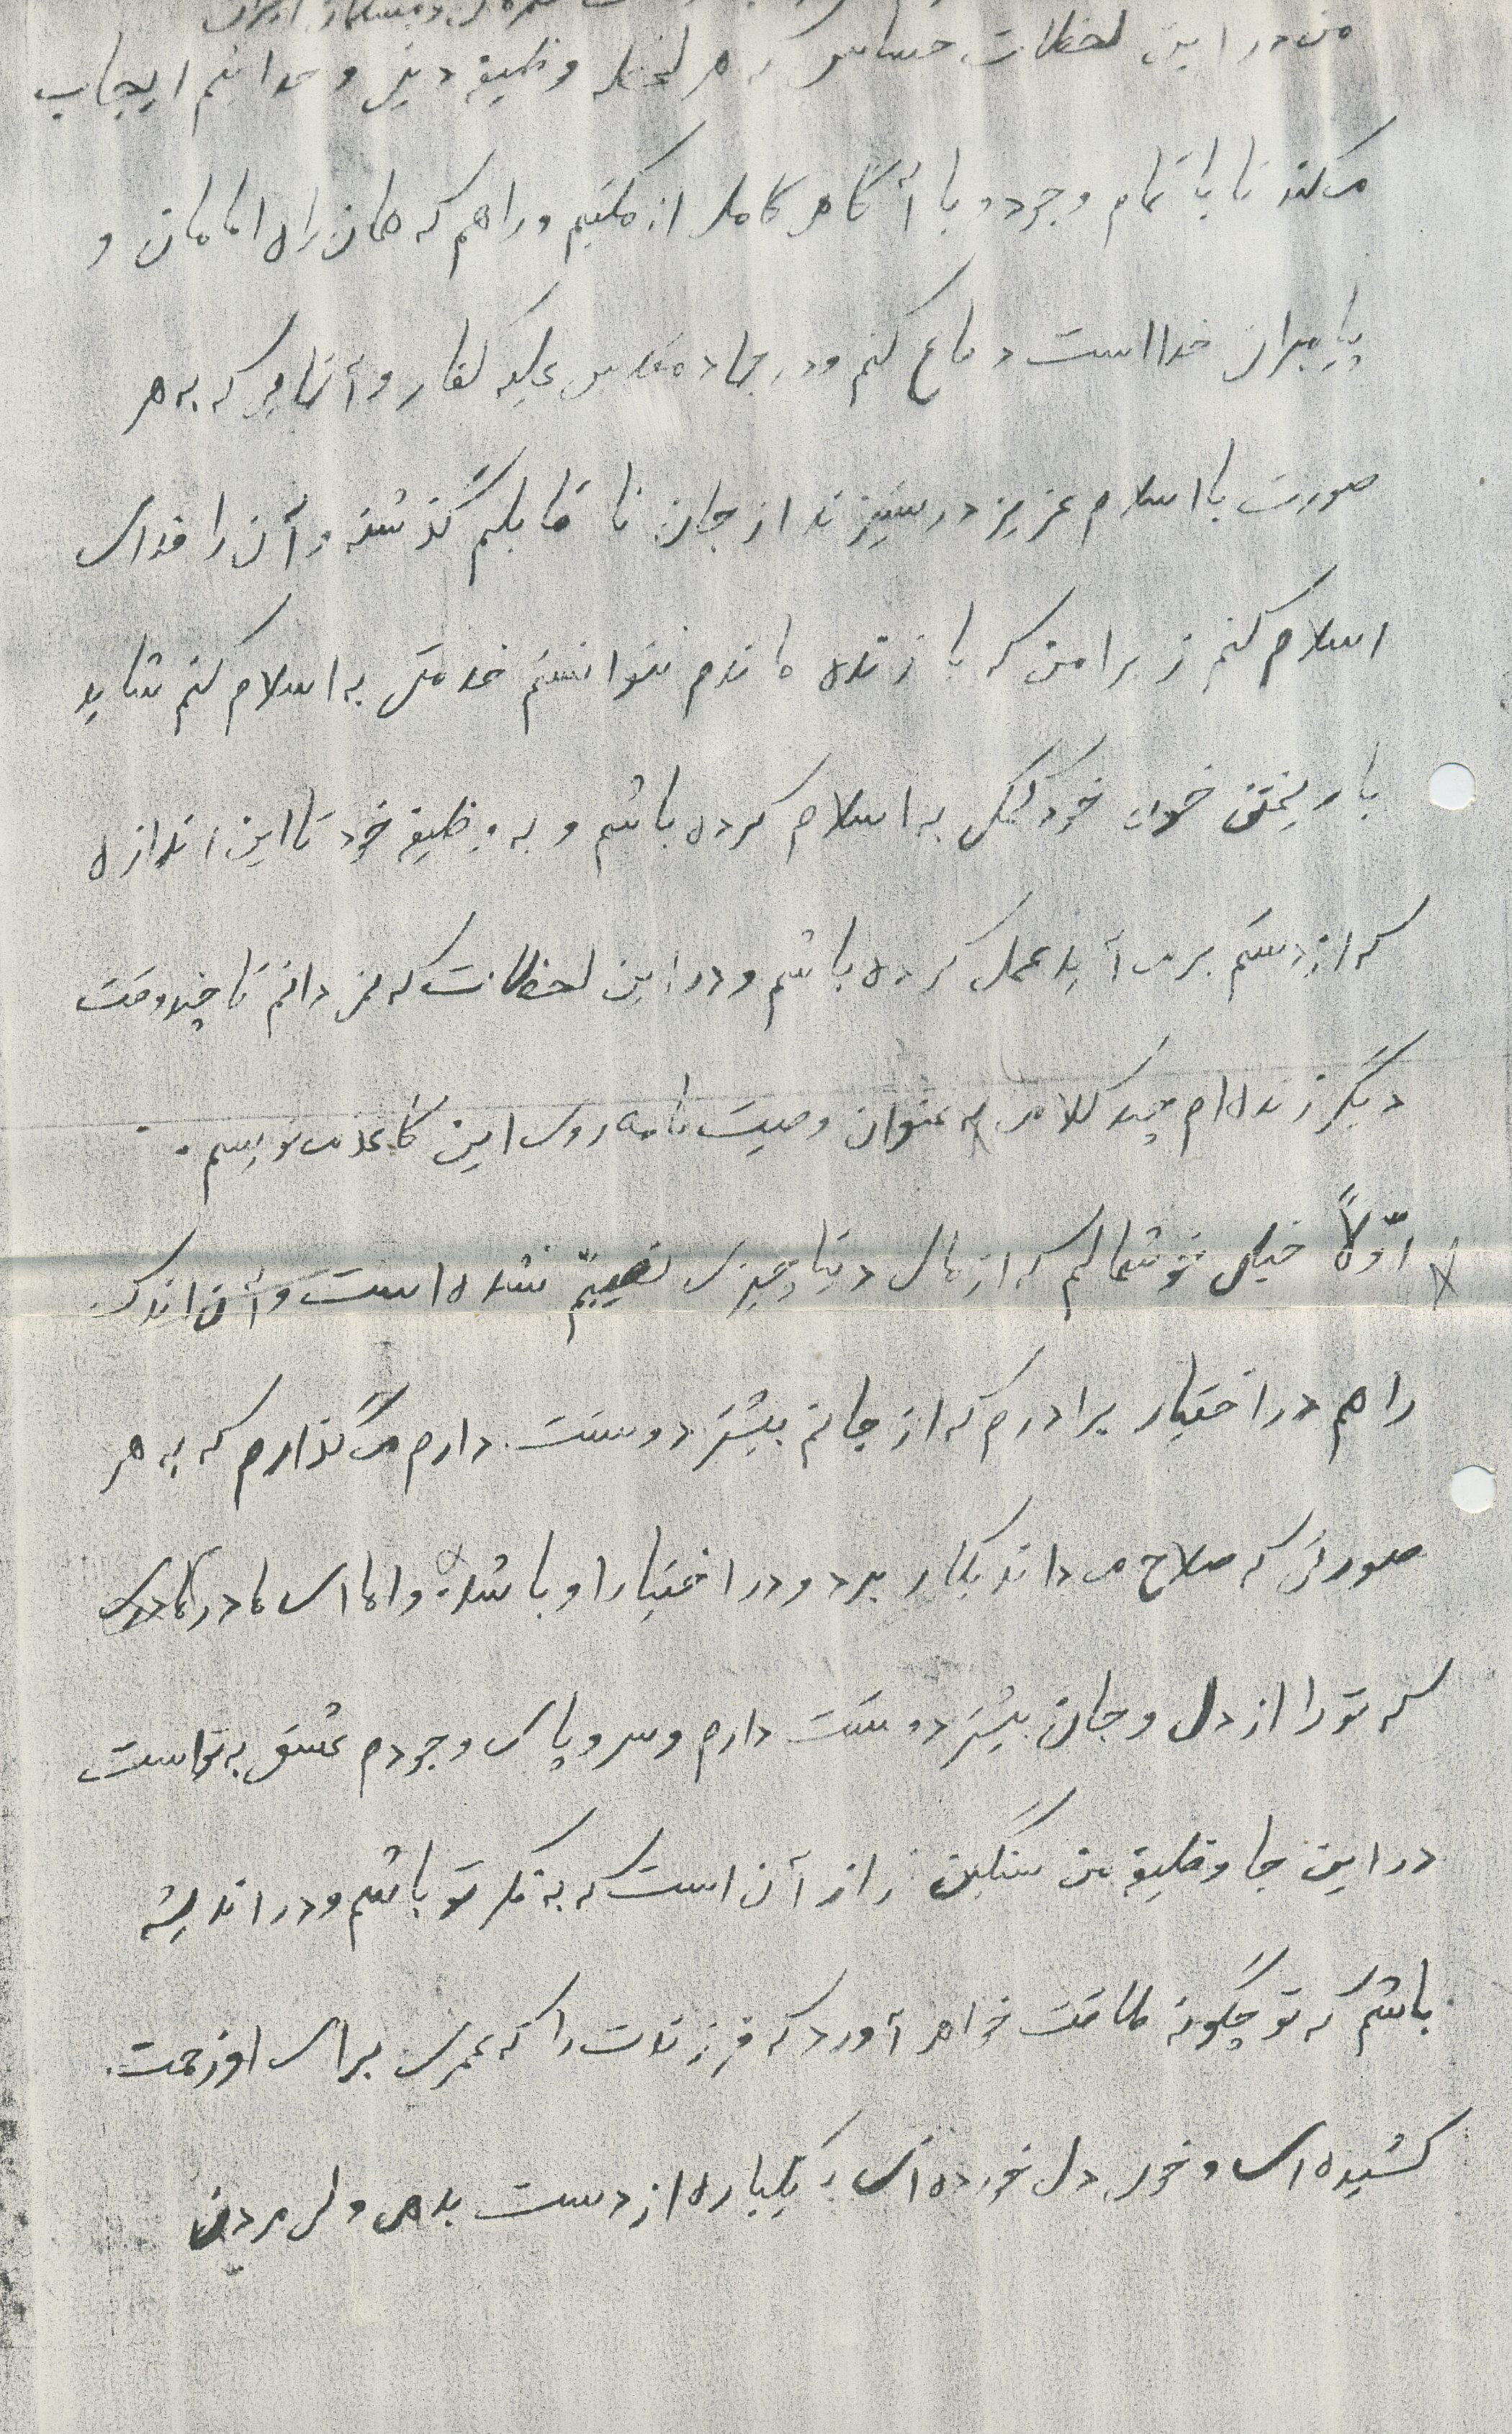 من در این لحظات حساس که هر لحظه وظیفه دینی و وجدانیم ایجاب
می‌کند تا با تمام وجود و با آگاهی کامل از مکتبم و راهم که همان راه امامان و
پیامبران خدا است دفاع کنم و در جهاد مقدس علیه کفار و آنهایی که به هر
صورت با اسلام عزیز در ستیزند از جان ناقابلم گذشته و آن را فدای
اسلام کنم زیرا من که با زنده ماندم نتوانستم خدمتی به اسلام کنم شاید
با ریختن خون خود کمکی به اسلام کرده باشم و به وظیفه خود تا این اندازه
که از دستم برمی‌آید عمل کرده باشم و در این لحظات که نمی‌دانم تا چند وقت
دیگر زنده‌ام چند کلامی به عنوان وصیت نامه روی این کاغذ می‌نویسم .
اوّلاً خیلی خوشحالم که از مال دنیا چیزی نصیبم نشده است و آن اندک
را هم در اختیار برادرم که از جانم بیشتر دوست دارم می‌گذارم که به هر
صورتی که صلاح می‌داند بکار برد و در اختیار او باشد و اما ای مادر
که تو را از دل و جان بیشتر دوست دارم و سر و پای وجودم عشق به تو است
در این جا وظیفه من سنگین تر از آن است که به فکر تو باشم و در اندیشه
باشم که تو چگونه طاقت خواهی آورد که فرزندت را که عمری برای او زحمت
کشیده‌ای و خون دل خورده‌ای یکباره از دست بدهی ولی مردن